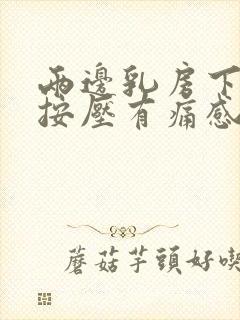 兩邊乳房下
按壓有痛感
蘑菇芋頭好喫